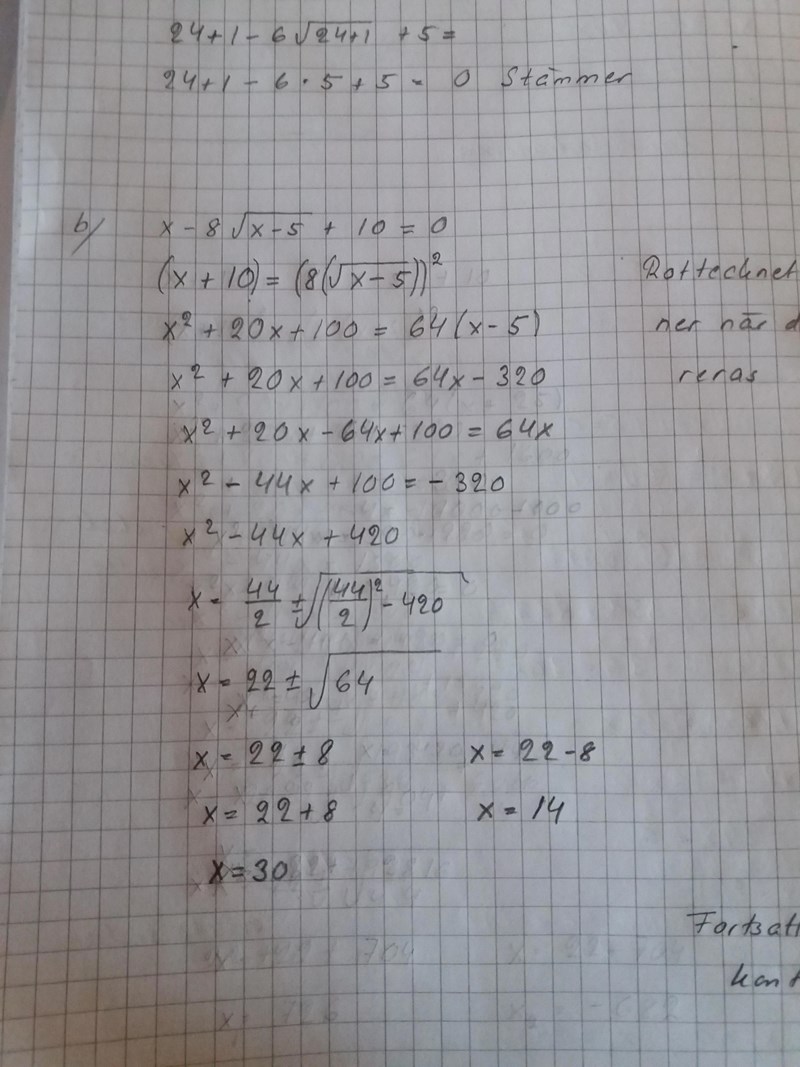 24+1-6√24+1 +5=
24+1-6·5+5=0 Stämmer
b/ x-8√x-5 + 10 = 0
(x+10)=(8(√x-5))²
x²+20x+100 = 64(x-5)
x²+20x+100=64x-320
x²+20x-64x+100=64x
x²-44x+100=-320
x²-44x+420
x= 44/2 ±√(44/2)²-420
x=22±√64
x=22±8 x=22-8
x=22+8 x=14
x=30
Rottecknet
ner när d
reras
Fortsätt
kont